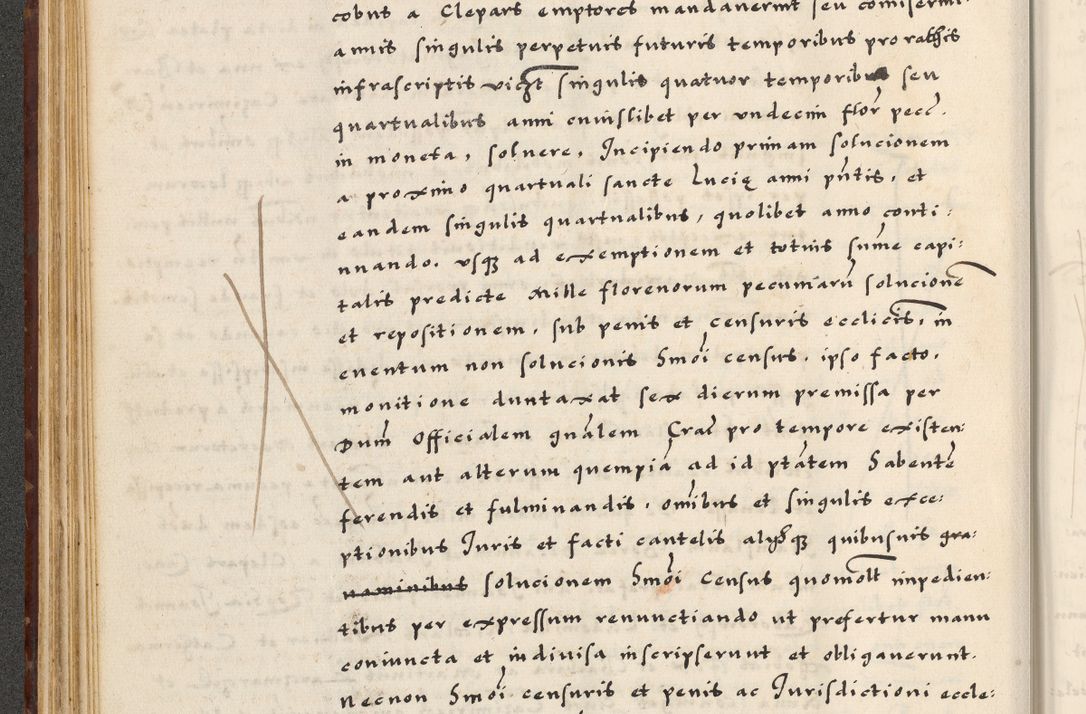 cobus a Clepars emptores mandaverint seu comiserint
annis singulis perpetuis futuris temporibus pro rathis
infrascriptis vidzt singulis quatuor temporibus seu
quartualibus anni cuiuslibet per undecim flor pecc.
in moneta, solvere, Incipiendo primam solucionem
a proximo quartuali sancte Lucię anni pñtis, et
eandem singulis quartualibus, quolibet anno conti:
nuando. usqȝ ad exemptionem et totius sum̄e capi:
talis predicte Mille florenorum pecuniarū solucionē
et repositionem, sub penis et censuris ecclicis, in
eventum non solucionis hmoi census, ipso facto,
monitione duntaxat sex dierum premissa per
Dum̄ Officialem gnālem Craĉ pro tempore existen:
tem aut alterum quempiā ad id ptātem habentē
ferendis et fulminandis, oībus et singulis exce:
ptionibus Iuris et facti cautelis alysqȝ quibusvis gra:
naminibus solucionem hmoi census quomolt impedien:
tibus per expressum renunctiando ut prefertur manu
coniuncta et indivisa inscripserunt et obligaverunt.
Necnon hmoi censuris et penis ac Iurisdictioni eccle: